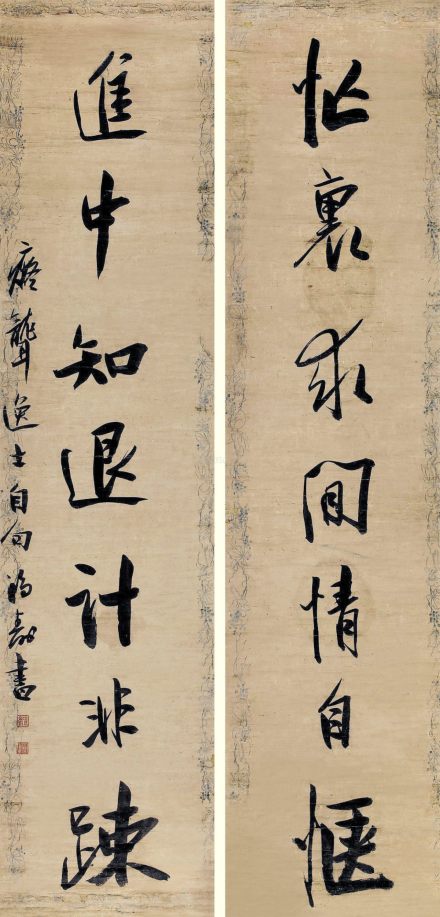 忙裏求閒情自愜
進中知退計非踈
聾逸士自句書